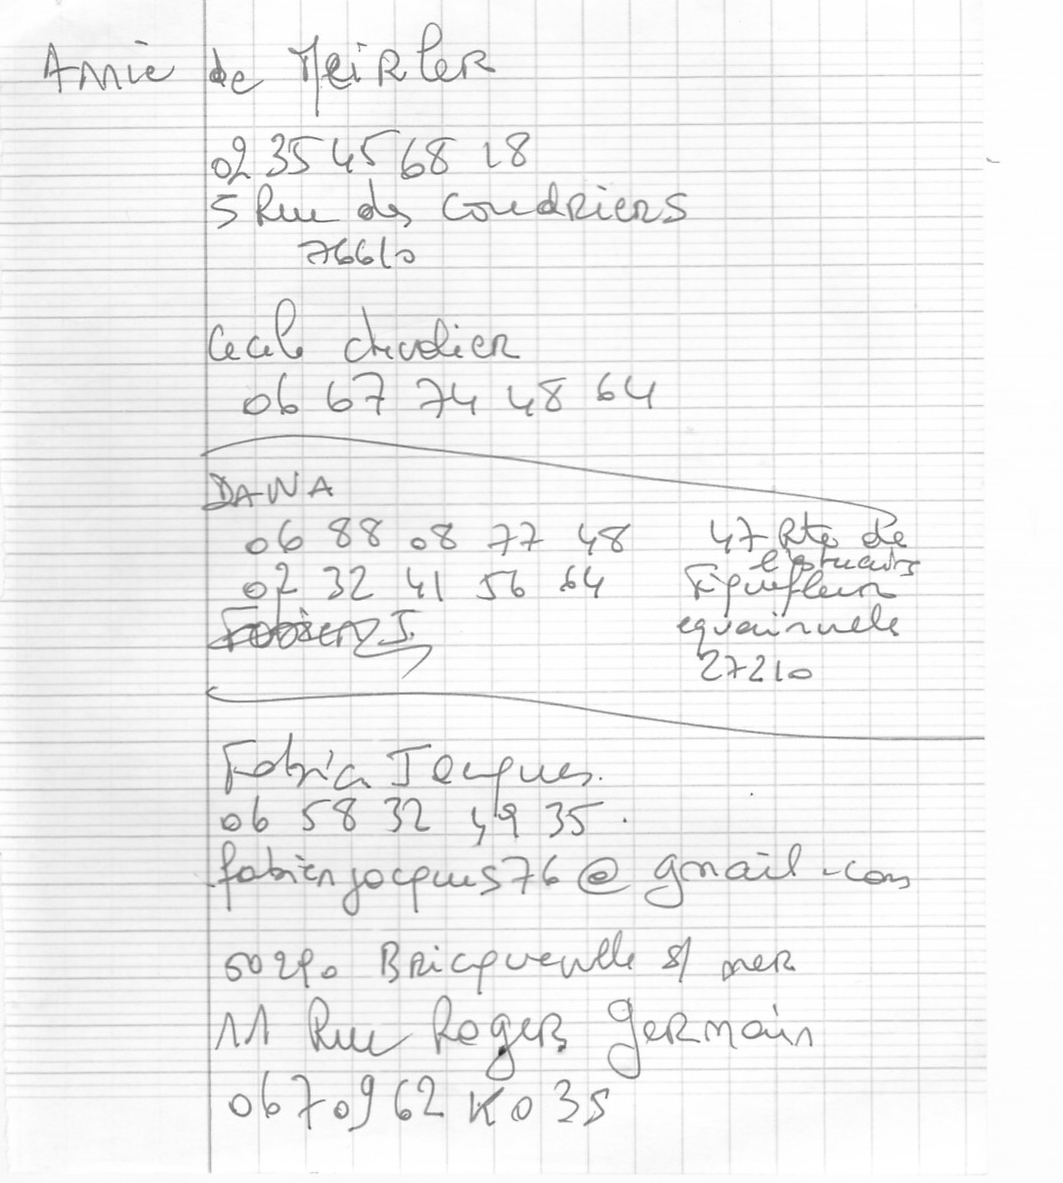 Amie de Meirler
02 35 45 68 18
5 Rue des Coudriers
76610
Cecile chevalier
06 67 74 48 64
DANA
06 88 08 77 48
02 32 41 56 64
47 Rte de
l'estuaire
Fiquefleur
equainville
27210
Fabien J.
Fabien Jacques.
06 58 32 49 35.
fabienjacques76@gmail.com
50290 Bricqueville s/ mer
11 Rue Roger Germain
06 70 96 2 K0 35